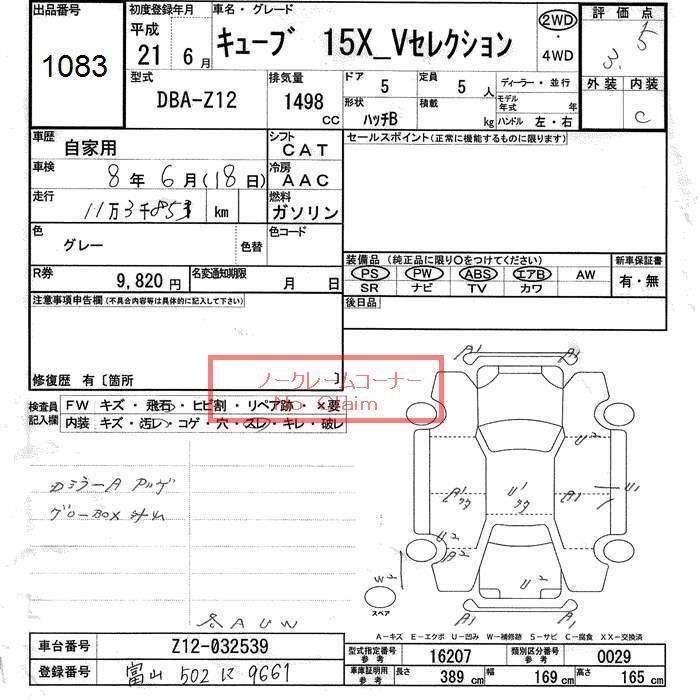 出品番号
1083
初度登録年月
平成
21 6月
車名・グレード
キューブ 15X_Vセレクション
2WD
・
4WD
評価点
3.5
外装 内装
C
型式
DBA-Z12
排気量
1498
CC
ドア
5
定員
5 人
形状
ハッチB
積載
kg
ディーラー・並行
モデル年式 年
ハンドル 左・右
車歴
自家用
シフト
CAT
車検
8 年 6 月(18 日)
冷房
AAC
走行
11万3千853 km
燃料
ガソリン
色
グレー
色替
色コード
R券
9,820 円
名変通知期限
月 日
セールスポイント(正常に機能するものに限ります)
装備品 (純正品に限り〇をつけてください)
新車保証書
PS PW ABS エアB AW
SR ナビ TV カワ
有・無
後日品
注意事項申告欄(不具合内容等は具体的に記入して下さい)
修復歴 有〔箇所 〕
ノークレームコーナー
No Claim
検査員
記入欄
FW キズ・飛石・ヒビ割・リペア跡・×要
内装 キズ・汚レ・コゲ・穴・スレ・キレ・破レ
DミラーA
グローBOX
A U W
A1
A1
U2
A1
U1
A1
U1
U2
A1
W2
U2
A1
A1
スペア
A-キズ E-エクボ U-凹み W-補修跡 S-サビ C-腐食 XX-交換済
車台番号
Z12-032539
登録番号
富山 502 に 9661
型式指定番号
参考
16207
類別区分番号
参考
0029
車庫証明用
参考
長さ
389 cm
幅
169 cm
高さ
165 cm